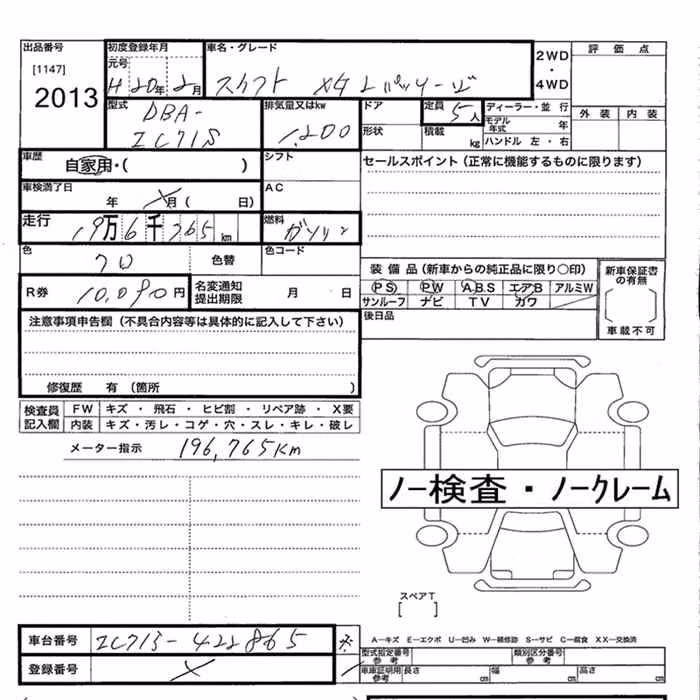 出品番号 初度登録年月 車名・グレード 2WD・4WD 評価点
[1147] 元号
2013 H20年2月 スイフト
型式 排気量又はkw ドア 定員 5人 ディーラー・並行 外装 内装
DBA- 1,200 モデル年式 年
ZC71S 形状 積載 kg ハンドル 左・右
車歴 自家用・( ) シフト セールスポイント(正常に機能するものに限ります)
車検満了日 年 月( 日) AC
走行 19万6千765km 燃料 ガソリン
色 クロ 色替 色コード
装備品(新車からの純正品に限り○印) 新車保証書の有無
R券 10,090円 名変通知提出期限 月 日 PS PW ABS エアB アルミW
サンルーフ ナビ TV カワ
注意事項申告欄(不具合内容等は具体的に記入して下さい) 後日品 車載不可
修復歴 有(箇所 )
検査員記入欄 FW キズ・飛石・ヒビ割・リペア跡・X要
内装 キズ・汚レ・コゲ・穴・スレ・キレ・破レ
メーター指示 196,765Km
ノー検査・ノークレーム
スペアT
[ ]
車台番号 ZC71S-422865 ※
A-キズ E-エクボ U-凹み W-補修跡 S-サビ C-腐食 XX-交換済
型式指定番号 参考 類別区分番号 参考
登録番号 車庫証明用参考 長さ cm 幅 cm 高さ cm